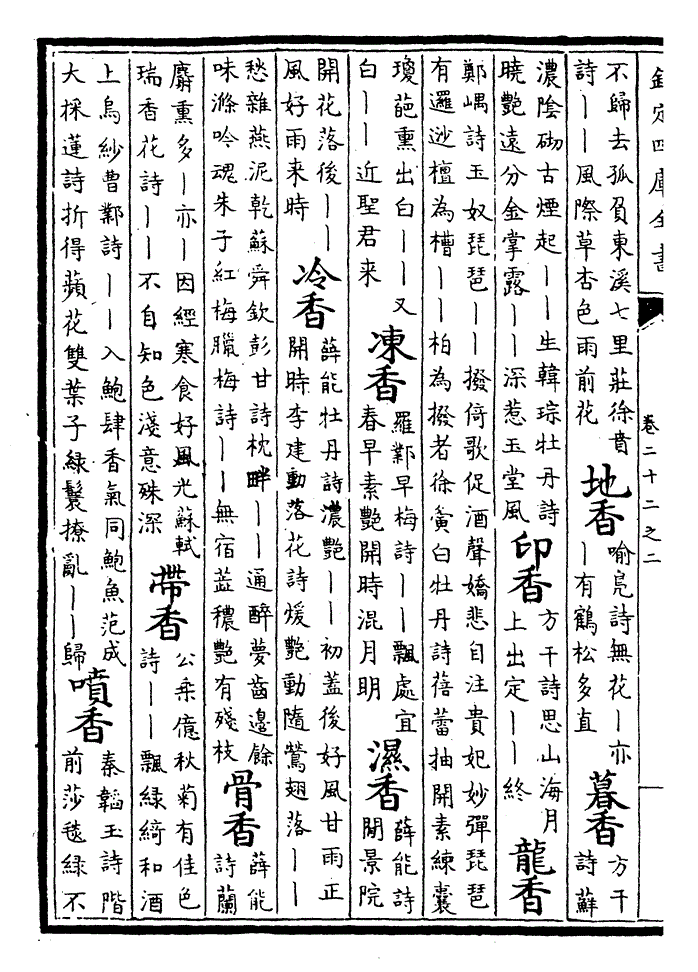 欽定四庫全書
卷二十二之二
不歸去孤負東溪七里莊徐賁
詩——風際草杏色雨前花
地香
喻鳬詩無花—亦
—有鶴松多直
暮香
方干
詩蘚
濃陰砌古煙起——生韓琮牡丹詩
曉艷遠分金掌露——深惹玉堂風
印香
方干詩思山海月
上出定——終
龍香
鄭嵎詩玉奴琵琶——撥倚歌促酒聲嬌悲自注貴妃妙彈琵琶
有邏逤檀為槽——柏為撥者徐夤白牡丹詩蓓蕾抽開素練囊
瓊葩熏出白——又
白——近聖君来
凍香
羅鄴早梅詩——飄處宜
春早素艷開時混月明
濕香
薛能詩
閒景院
開花落後——
風好雨来時
冷香
薛能牡丹詩濃艷——初蓋後好風甘雨正
開時李建勳落花詩煖艷動隨鶯翅落——
愁雜燕泥乾蘇舜欽彭甘詩枕畔——通醉夢齒邊餘
味滌吟魂朱子紅梅臘梅詩——無宿蓝穠艷有殘枝
骨香
薛能
詩蘭
麝熏多—亦—因經寒食好風光蘇軾
瑞香花詩——不自知色淺意殊深
帶香
公乘億秋菊有佳色
詩——飄綠綺和酒
上烏紗曹鄴詩——入鮑肆香氣同鮑魚范成
大採蓮詩折得蘋花雙葉子綠鬟撩亂——歸
噴香
秦韜玉詩階
前莎毯綠不